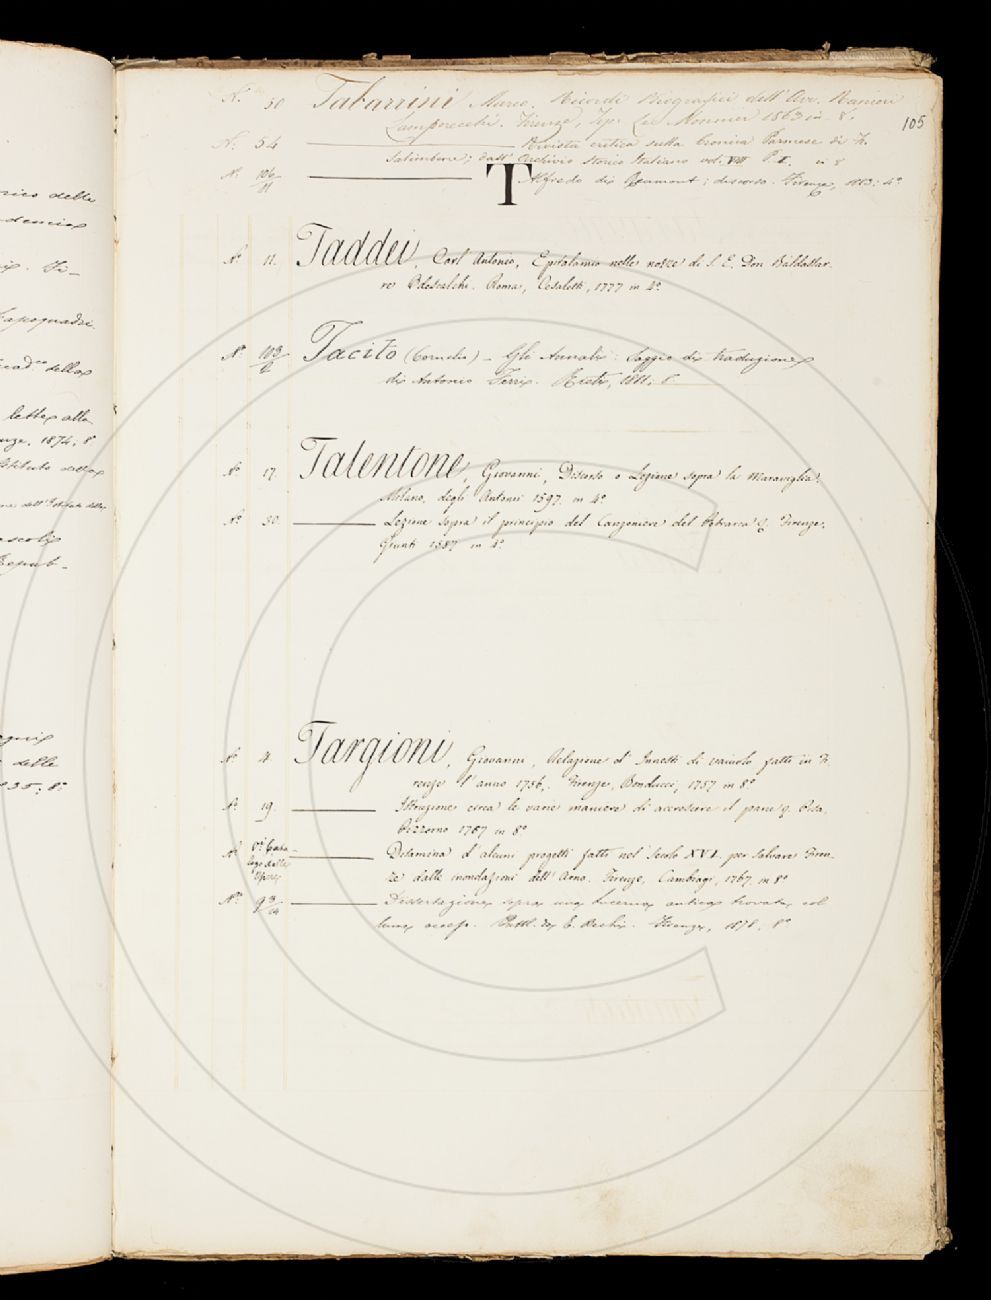 nico della
demia
105
N.° 50 Tabarrini Marco. Ricordi biografici dell'Avv. Ranieri
Lamporecchi. Firenze, Tip. Le Monnier 1863 in 8.°
N.° 54 Rivista critica sulla Cronica Parmense di F.
Salimbene; dall'Archivio Storico Italiano vol. XVI P. I. in 8
N.° 106/11 Alfredo di Reumont; discorso. Firenze, 1883; 4.°
T
N.° 11. Taddei, Carl' Antonio, Epitalamio nelle nozze di S. E. Don Baldassar-
re Odescalchi. Roma, Casaletti, 1777 in 4.°
N.° 103/2 Tacito (Cornelio) – Gli Annali: Saggio di traduzione
di Antonio Ferri. Rieti, 1811; 8.
N.° 17. Talentone, Giovanni, Discorso o Lezione sopra la Maraviglia.
Milano, degli Antonii 1597. in 4.°
N.° 50. Lezione sopra il principio del Canzoniere del Petrarca &. Firenze,
Giunti 1587 in 4.°
N.° 4. Targioni, Giovanni, Relazione d'Innesti di vaiuolo fatti in Fi-
renze l'anno 1756. Firenze, Bonducci, 1757 in 8.°
N.° 19. Istruzione circa le varie maniere di accrescere il pane &. Pisa,
Pizzorno 1767 in 8.°
N.° V.i Cata-
logo delle
Opere Disamina d'alcuni progetti fatti nel Secolo XVI. per salvare Firen-
ze dalle inondazioni dell'Arno. Firenze, Cambiagi, 1767. in 8.°
N.° 93/14 Dissertazione sopra una lucerna antica trovata col
lume acceso. Firenze, 1878, 8.°
di. Fi-
Capoquadri.
cad.ca della
lette alla
enze, 1874, 8.
stituto della
dell'Istituto della
ascoli
Repub-
delle
35; 8.°